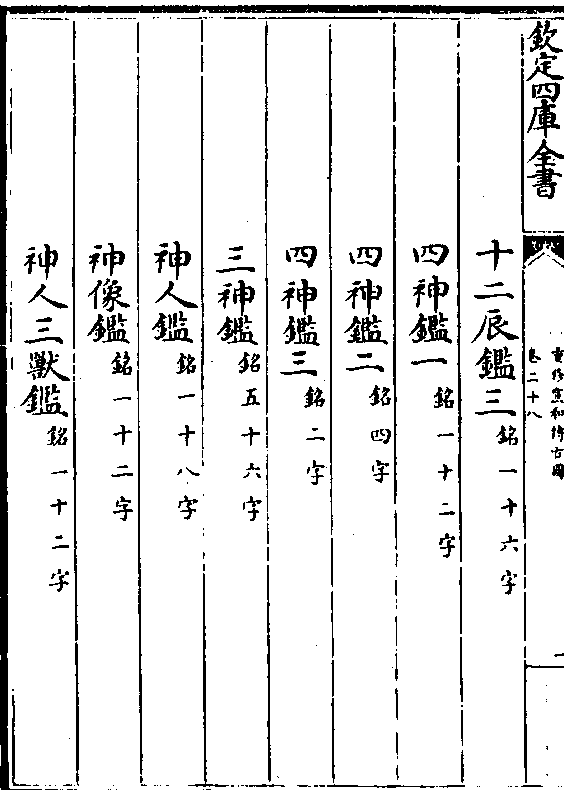 欽定四庫全書
重修宣和博古圖
卷二十八
一
十二辰鑑三銘一十六字
四神鑑一銘一十二字
四神鑑二銘四字
四神鑑三銘二字
三神鑑銘五十六字
神人鑑銘一十八字
神像鑑銘一十二字
神人三獸鑑銘一十二字